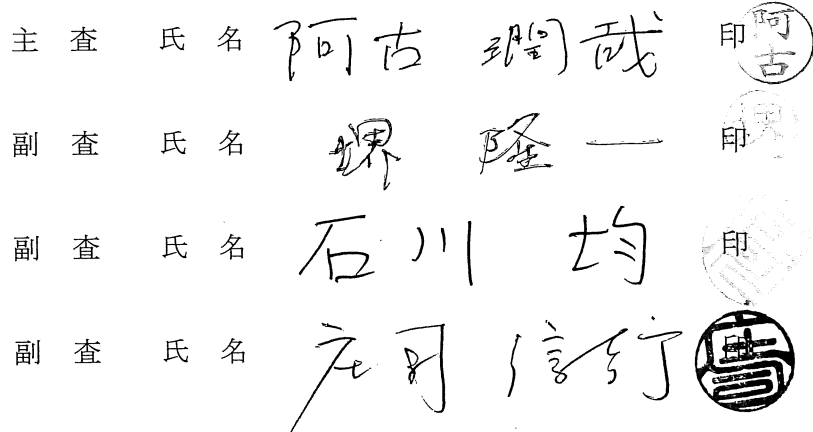 主査 氏名 阿古 潤哉 印 阿古
副査 氏名 堺 隆一 印 堺
副査 氏名 石川 均 印
副査 氏名 庄司 信行 印